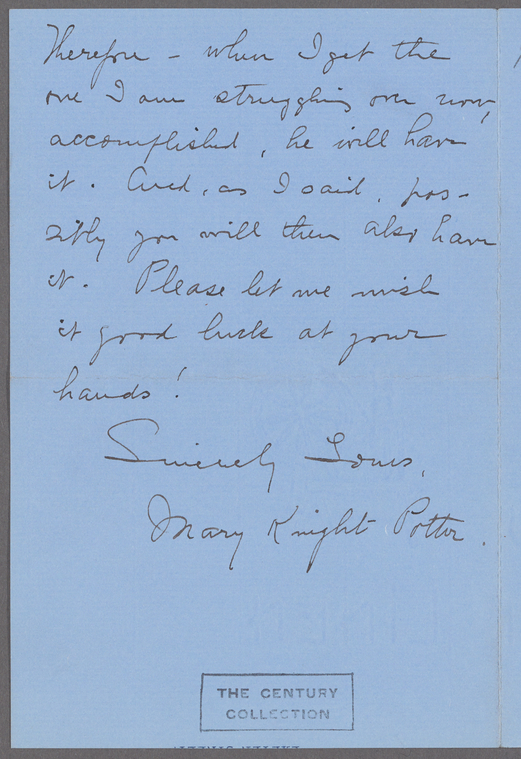 Therefore - when I get the
one I am struggling over now,
accomplished, he will have
it. And, as I said, pos-
sibly you will then also have
it. Please let me wish
it good luck at your
hands!
Sincerely Yours,
Mary Knight Potter.
THE CENTURY
COLLECTION